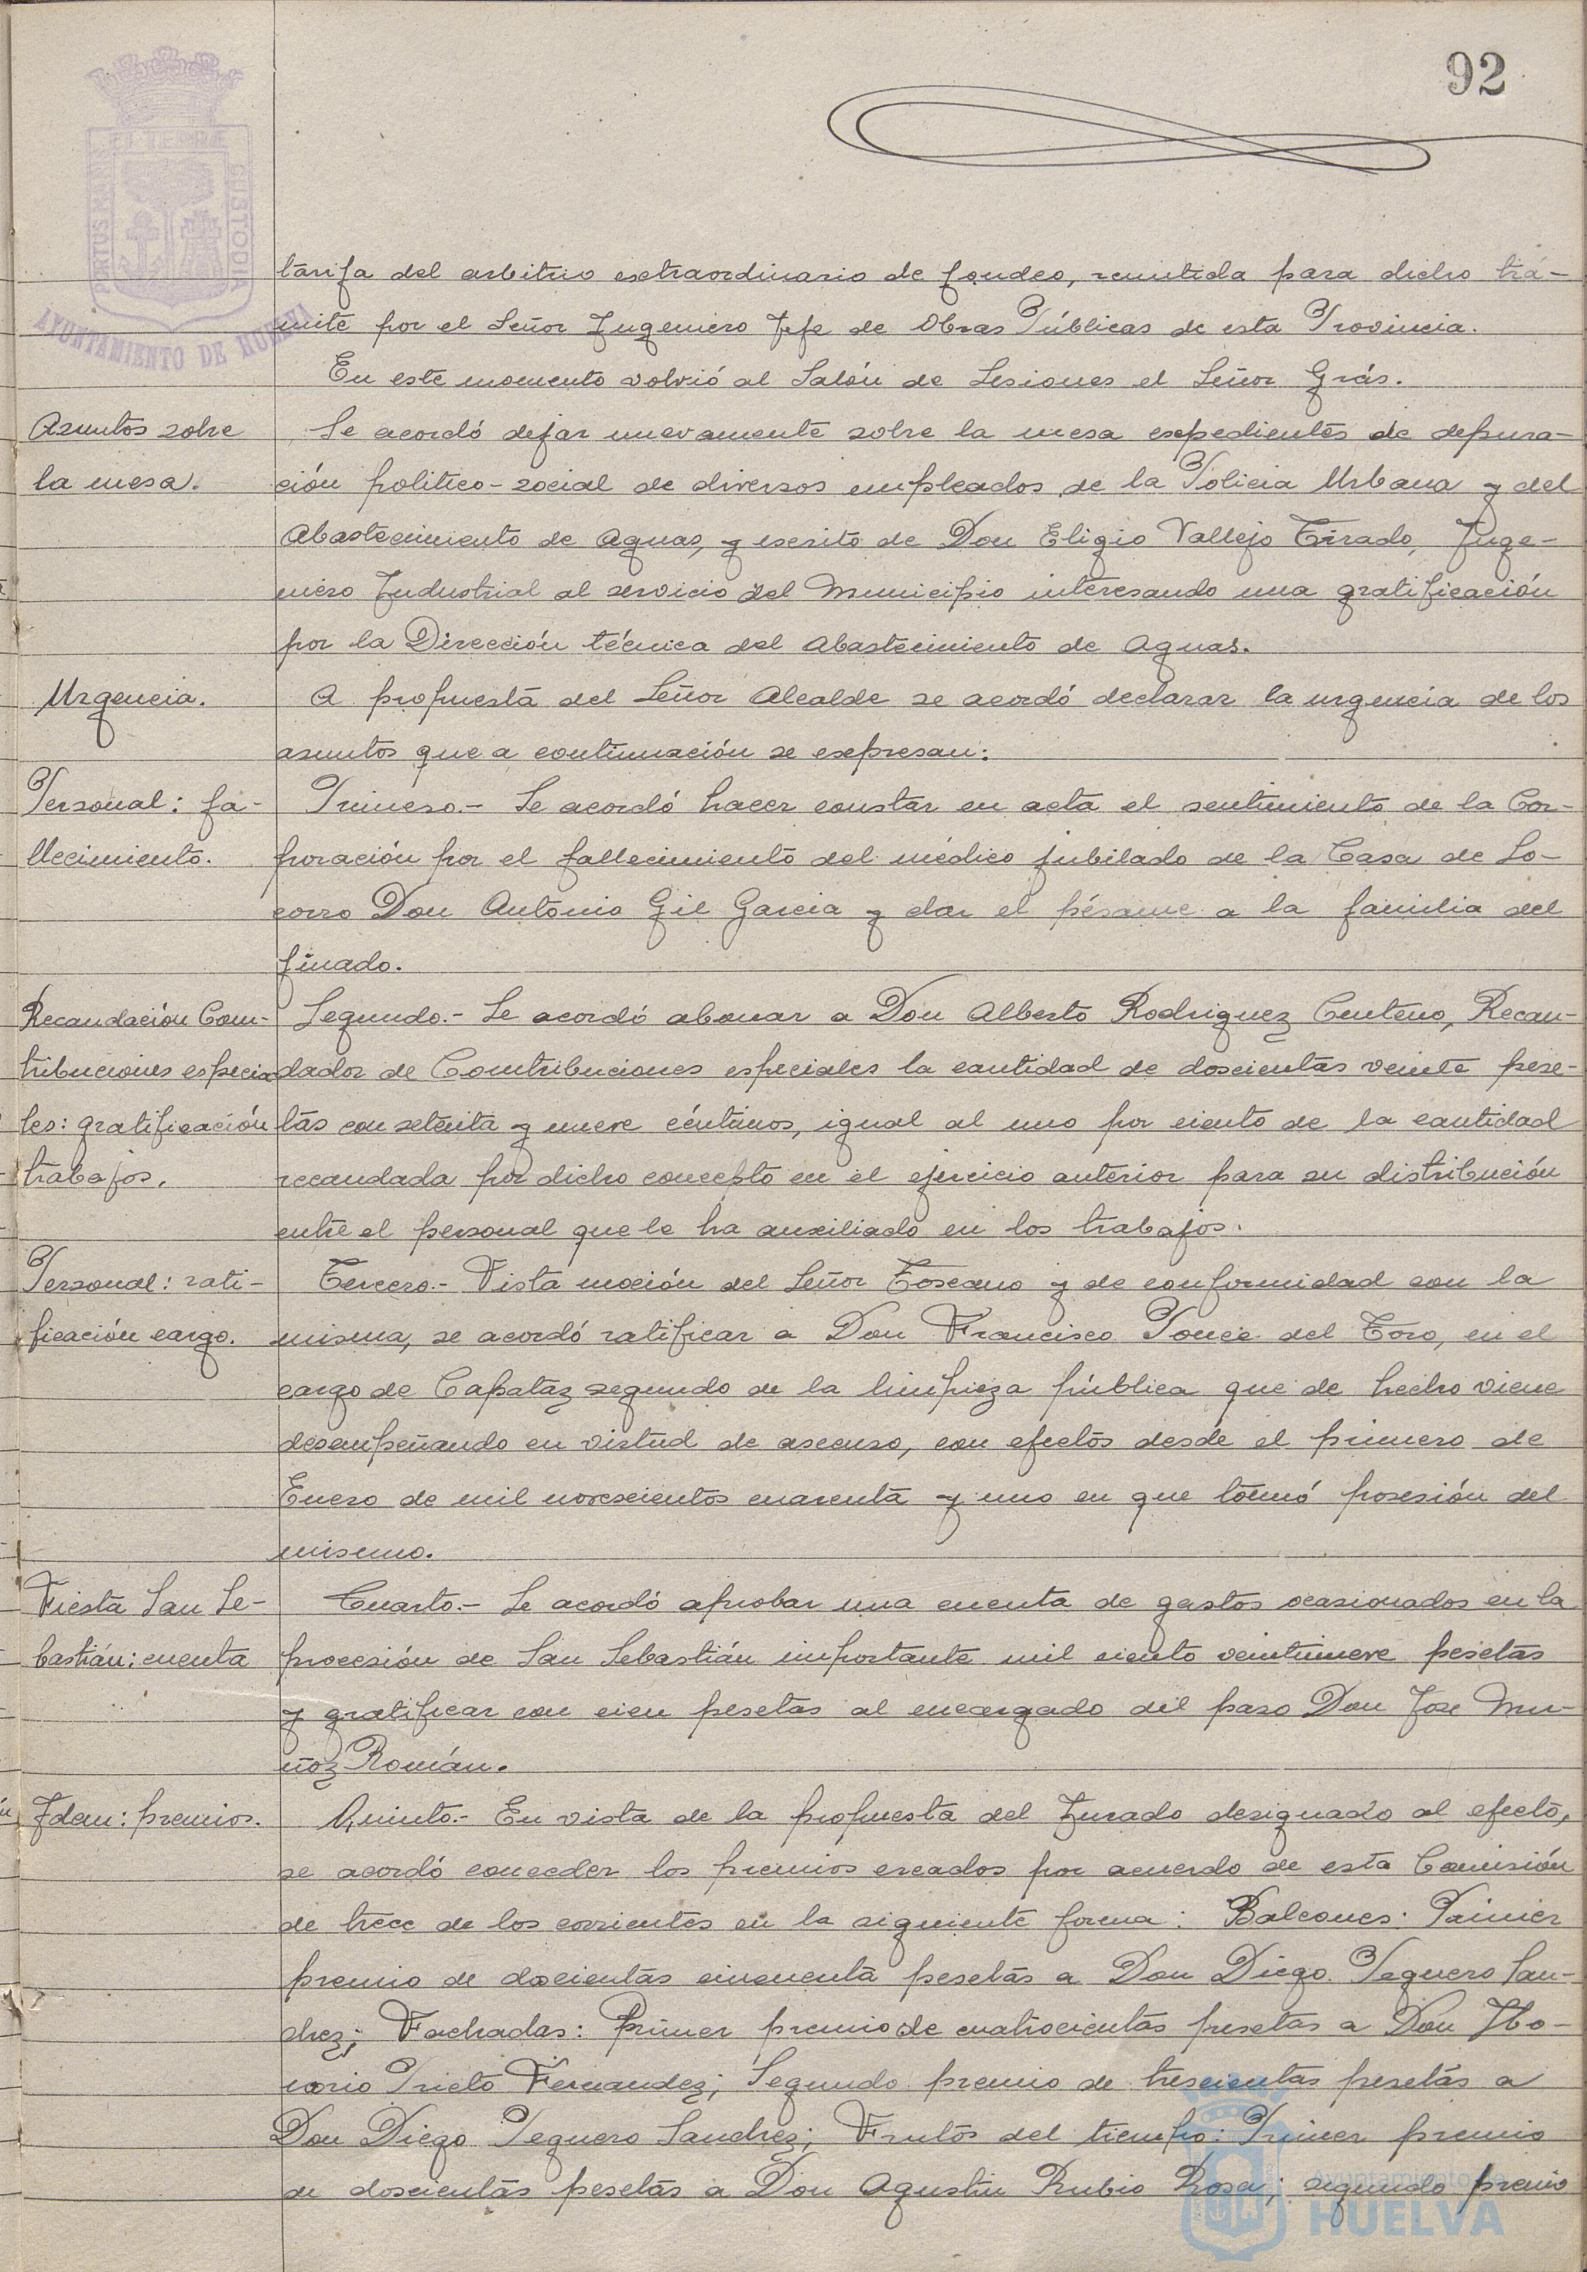 92
PORTUS MARIS ET TERRE CUSTODIA
AYUNTAMIENTO DE HUELVA
tarifa del arbitrio extraordinario de fondeo, remitida para dicho trá-
mite por el Señor Ingeniero Jefe de Obras Públicas de esta Provincia.
En este momento volvió al Salón de Sesiones el Señor Grás.
Asuntos sobre
la mesa.
Se acordó dejar nuevamente sobre la mesa expedientes de depura-
ción politico-social de diversos empleados de la Policia Urbana y del
Abastecimiento de Aguas, y escrito de Don Eligio Vallejo Tirado, Inge-
niero Industrial al servicio del Municipio interesando una gratificación
por la Dirección técnica del Abastecimiento de Aguas.
Urgencia.
A propuesta del Señor Alcalde se acordó declarar la urgencia de los
asuntos que a continuación se expresan:
Personal: fa-
llecimiento.
Primero.- Se acordó hacer constar en acta el sentimiento de la Cor-
poración por el fallecimiento del médico jubilado de la Casa de So-
corro Don Antonio Gil Garcia y dar el pésame a la familia del
finado.
Recaudación Con-
tribuciones especia
les: gratificación
trabajos.
Segundo.- Se acordó abonar a Don Alberto Rodriguez Centeno, Recau-
dador de Contribuciones especiales la cantidad de doscientas veinte pese-
tas con setenta y nueve céntimos, igual al uno por ciento de la cantidad
recaudada por dicho concepto en el ejercicio anterior para su distribución
entre el personal que le ha auxiliado en los trabajos.
Personal: rati-
ficación cargo.
Tercero.- Vista moción del Señor Toscano y de conformidad con la
misma, se acordó ratificar a Don Francisco Ponce del Toro, en el
cargo de Capataz segundo de la limpieza pública que de hecho viene
desempeñando en virtud de ascenso, con efectos desde el primero de
Enero de mil novescientos cuarenta y uno en que tomó posesión del
mismo.
Fiesta San Se-
bastián: cuenta
Cuarto.- Se acordó aprobar una cuenta de gastos ocasionados en la
procesión de San Sebastián importante mil ciento veintinueve pesetas
y gratificar con cien pesetas al encargado del paso Don Jose Mu-
ñoz Román.
Idem: premios.
Quinto.- En vista de la propuesta del Jurado designado al efecto,
se acordó conceder los premios creados por acuerdo de esta Comisión
de trece de los corrientes en la siguiente forma: Balcones: Primer
premio de doscientas cincuenta pesetas a Don Diego Peguero San-
chez; Fachadas: Primer premio de cuatrocientas pesetas a Don Ho-
norio Prieto Fernandez; Segundo premio de trescientas pesetas a
Don Diego Peguero Sanchez; Frutos del tiempo: Primer premio
de doscientas pesetas a Don Agustin Rubio Rosa; segundo premio
Ayuntamiento de
HUELVA